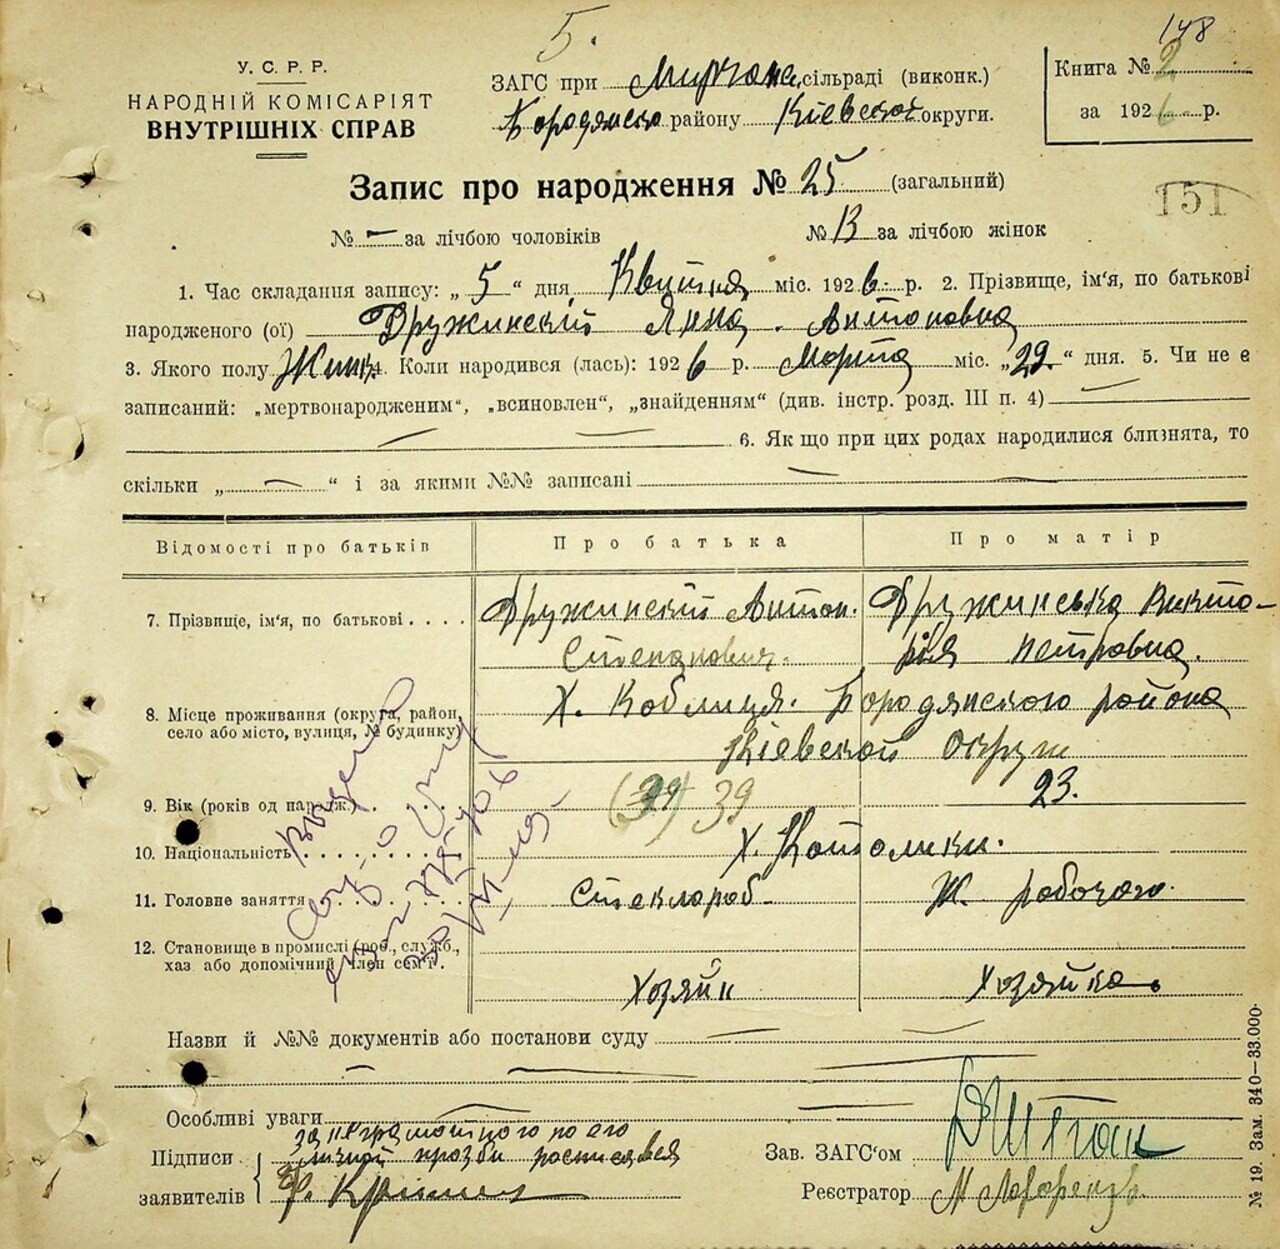 148
5.
У. С. Р. Р.
НАРОДНІЙ КОМІСАРІЯТ
ВНУТРІШНІХ СПРАВ
ЗАГС при сільраді (виконк.)
Бородянско району Кіевской округи.
Книга № 2
за 1926 р.
Запис про народження № 25 (загальний)
151
№ — за лічбою чоловіків № 13 за лічбою жінок
1. Час складання запису: „ 5 “ дня Квитня міс. 1926 р. 2. Прізвище, ім'я, по батькові
народженого (ої) Дружинскій Яніна . Антоновна
3. Якого полу Жинк. 4. Коли народився (лась): 1926 р. Марта міс. „29.“ дня. 5. Чи не є
записаний: „мертвонародженим“, „всиновлен“, „знайденням“ (див. інстр. розд. III п. 4) —
— — 6. Як що при цих родах народилися близнята, то
скільки „ — “ і за якими №№ записані — —
Відомості про батьків Про батька Про матір
7. Прізвище, ім'я, по батькові . . . . Дружинскій Антон. Дружинська Викто-
Степанович. рія Петровна.
8. Місце проживання (округа, район, село або місто, вулиця, № будинку) Х. Коблиця. Бородянского района
Кіевской Округи
9. Вік (років од нар дж.) . 39 23.
10. Національність . . . . . . . . Х. Католики.
11. Головне заняття . . . . . . . Стеклораб- Ж. рабочого.
12. Становище в промислі (роб., служб.,
хаз. або допомічний член сем'ї .
Хозяйн Хозяйка
Назви й №№ документів або постанови суду — —
— — —
Особливі уваги — —
за неграмотного по его
Підписи личной прозби росписався
заявителів
Зав. ЗАГС'ом
Реєстратор
№ 19. Зам. 340—33.000